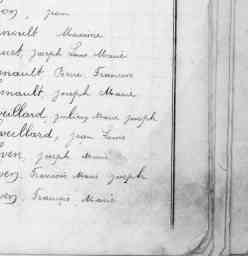 on, jean
nault Maxime
uet, joseph Louis Marie
nault Pierre, Francois
nault joseph Marie
veillard, julien Marie joseph
veillard, jean Louis
ven, joseph Marie
ven, Francois Marie joseph
ven, François Marie